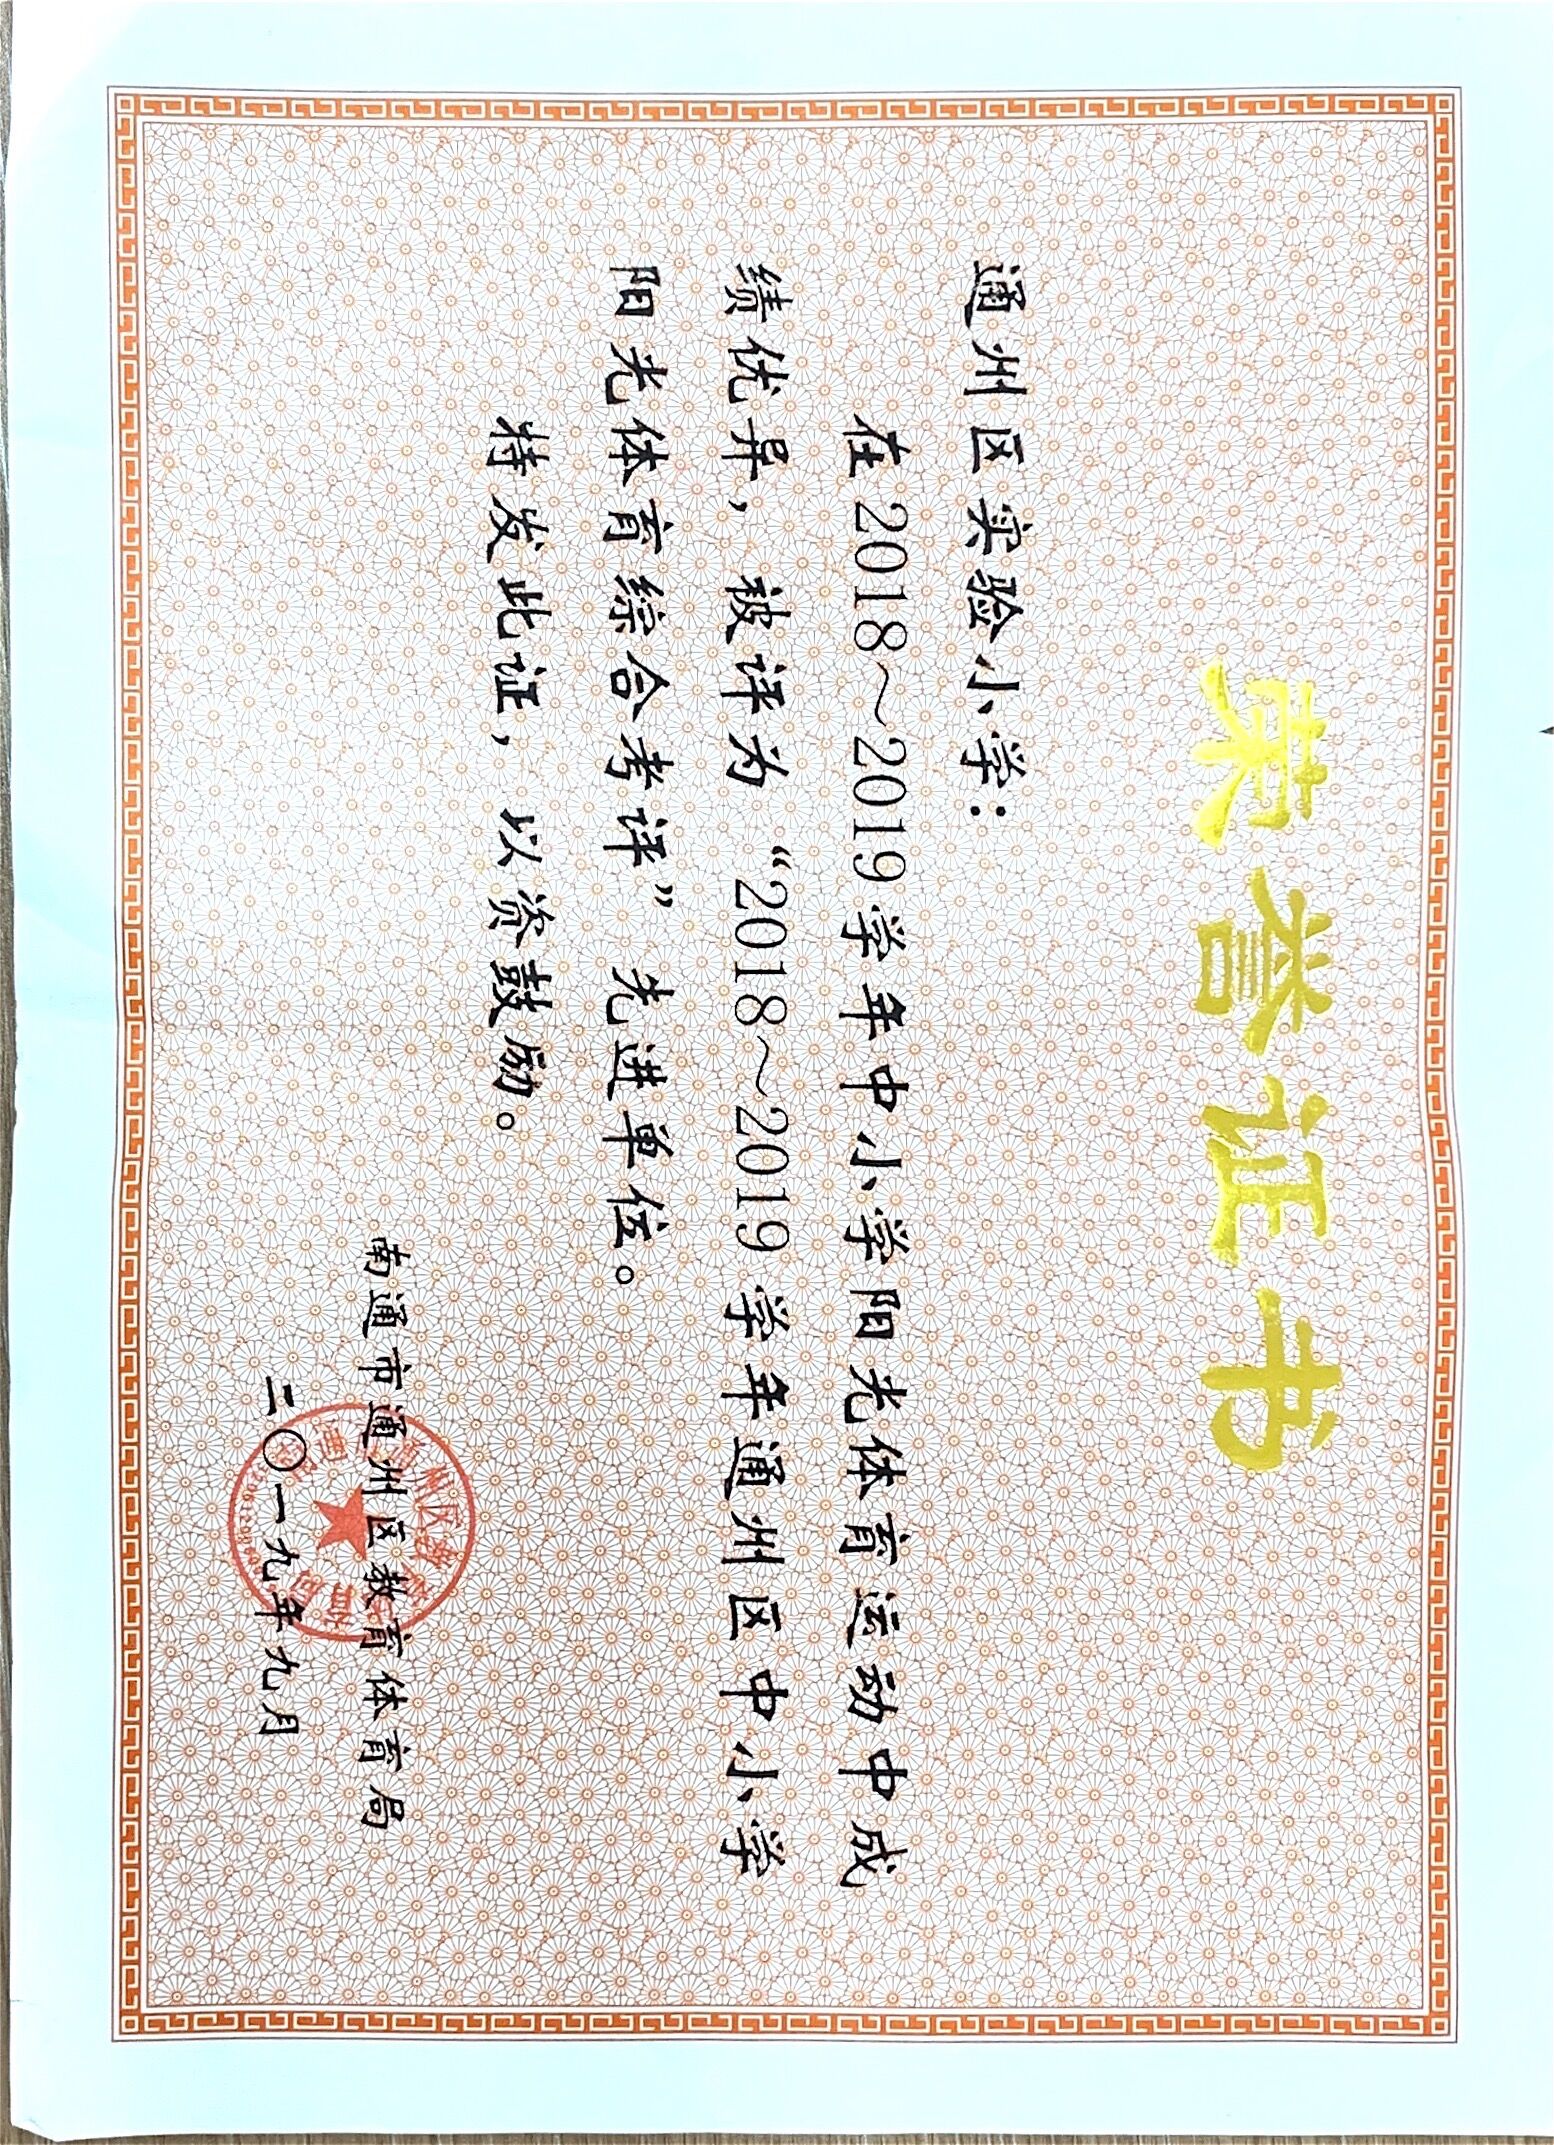 荣誉证书
通州区实验小学：
在2018～2019学年中小学阳光体育运动中成
绩优异，被评为“2018～2019学年通州区中小学
阳光体育综合考评”先进单位。
特发此证，以资鼓励。
南通市通州区教育体育局
二〇一九年九月